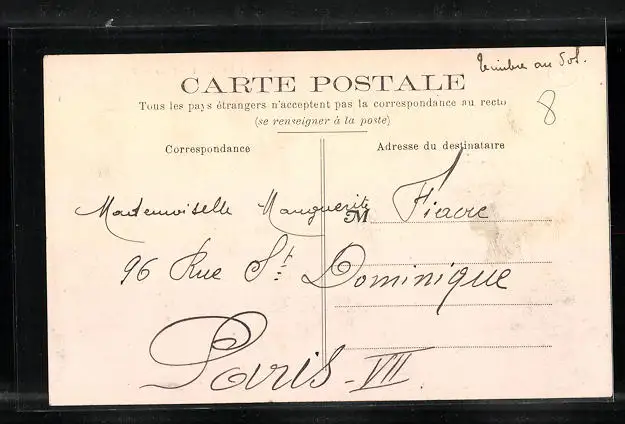 Timbre au dos.
CARTE POSTALE
Tous les pays étrangers n'acceptent pas la correspondance au recto
(se renseigner à la poste)
8
Correspondance
Adresse du destinataire
Mademoiselle Marguerite Fiacre
M
96 Rue St Dominique
Paris - VII